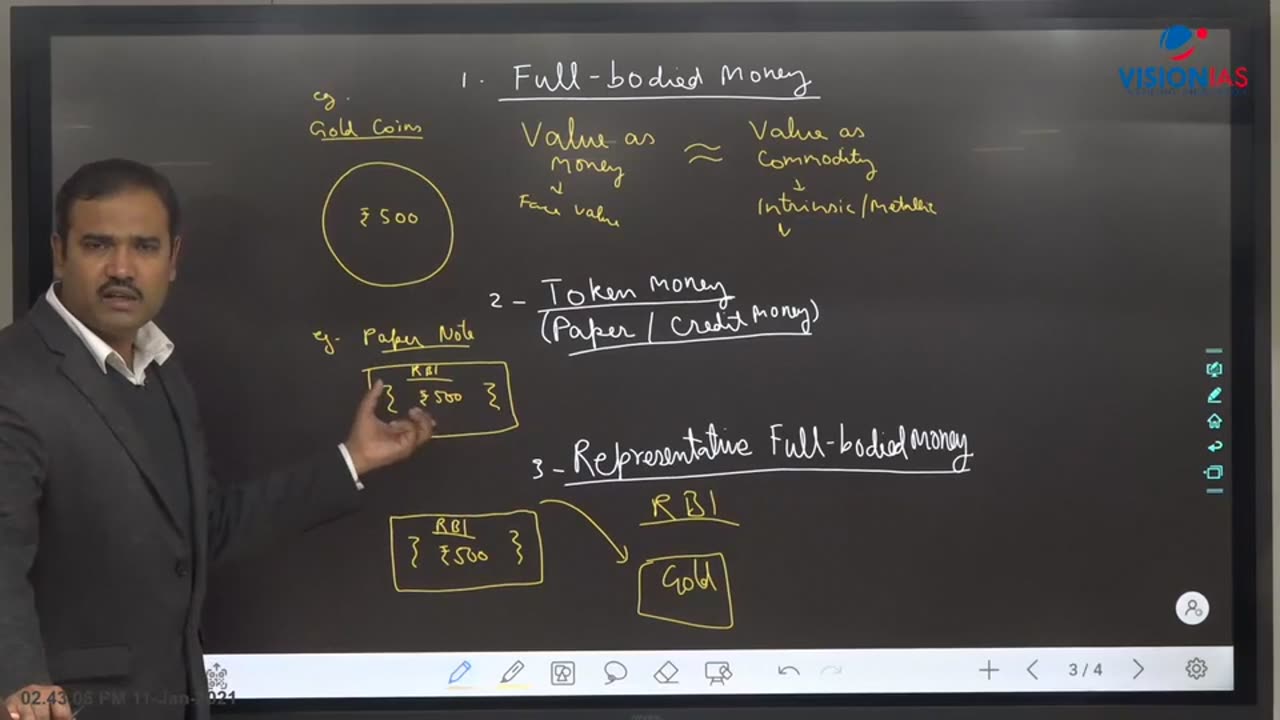 VISIONIAS
1. Full-bodied Money
eg.
Gold Coins
₹500
Value as
Money
Face value
≈
Value as
Commodity
Intrinsic/Metallic
v
2- Token Money
(Paper / Credit Money)
eg- Paper Note
RBI
₹500
3- Representative Full-bodied Money
RBI
₹500
RBI
Gold
3/4
02.43.05 PM 11-Jan-2021